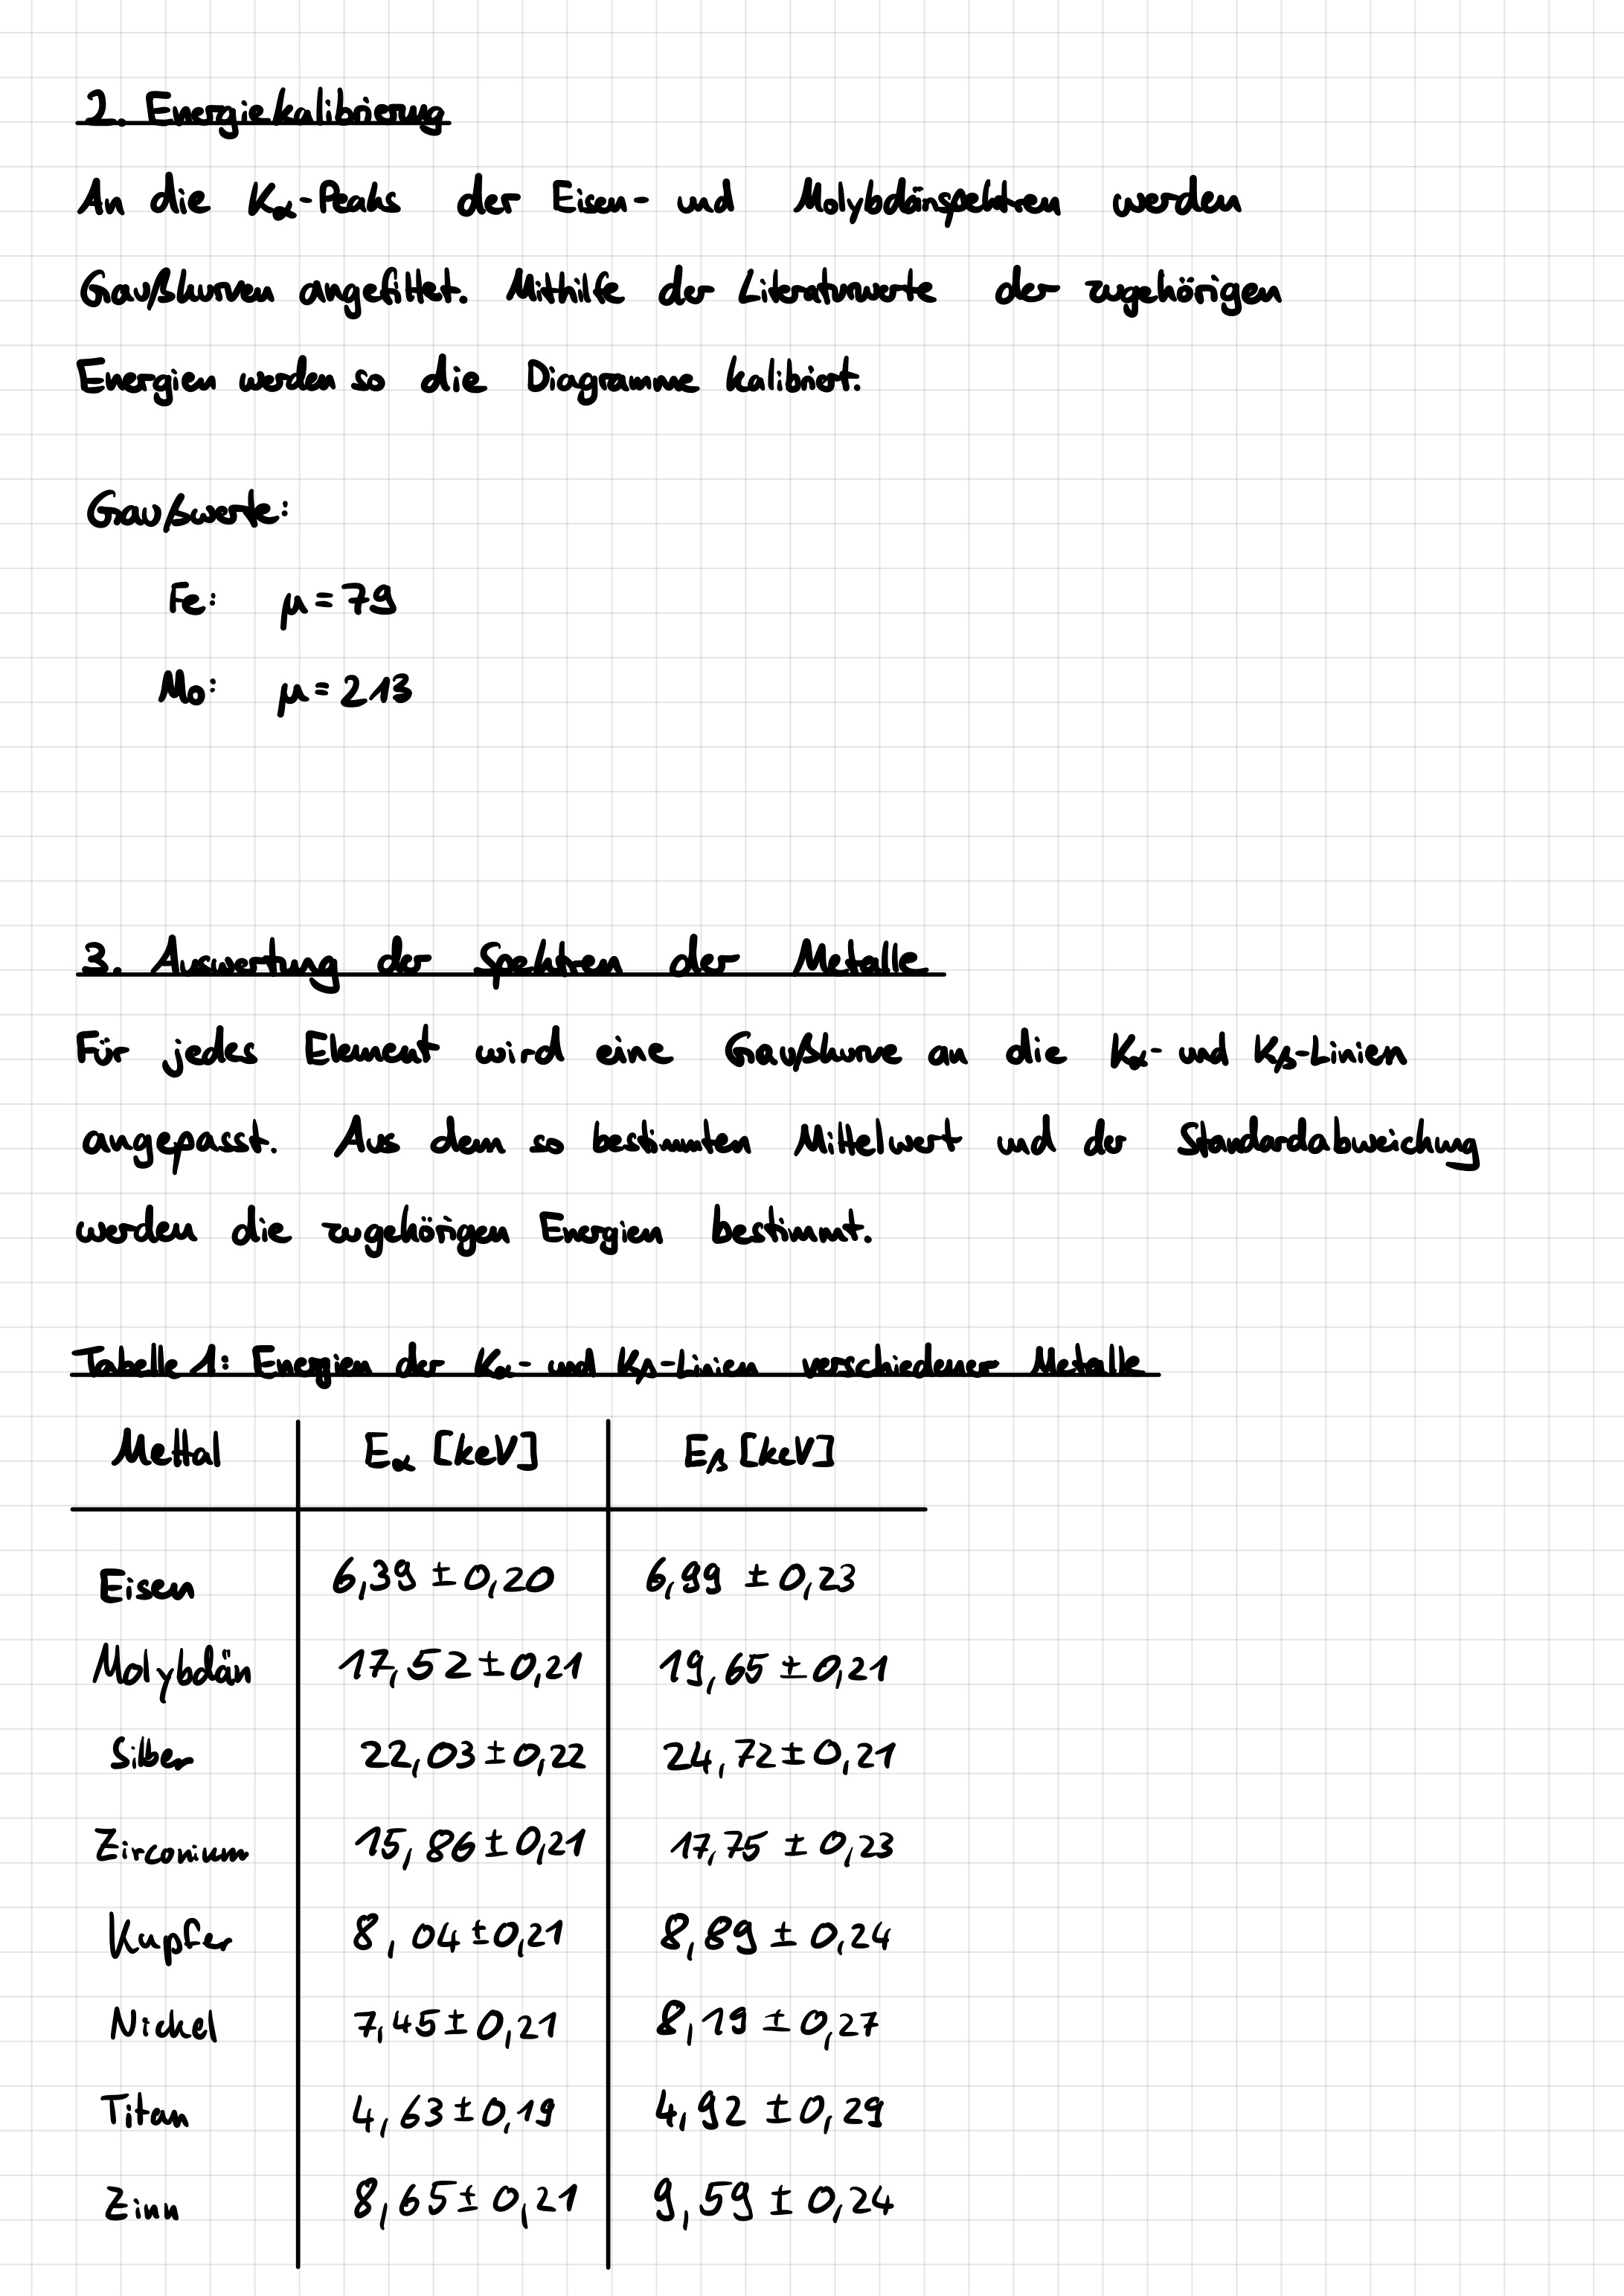 2. Energiekalibrierung
An die Kα-Peaks der Eisen- und Molybdänspektren werden
Gaußkurven angefittet. Mithilfe der Literaturwerte der zugehörigen
Energien werden so die Diagramme kalibriert.
Gaußwerte:
Fe: μ = 79
Mo: μ = 213
3. Auswertung der Spektren der Metalle
Für jedes Element wird eine Gaußkurve an die Kα- und Kβ-Linien
angepasst. Aus dem so bestimmten Mittelwert und der Standardabweichung
werden die zugehörigen Energien bestimmt.
Tabelle 1: Energien der Kα- und Kβ-Linien verschiedener Metalle
Mettal Eα [keV] Eβ [keV]
Eisen 6,39 ± 0,20 6,99 ± 0,23
Molybdän 17,52 ± 0,21 19,65 ± 0,21
Silber 22,03 ± 0,22 24,72 ± 0,21
Zirconium 15,86 ± 0,21 17,75 ± 0,23
Kupfer 8,04 ± 0,21 8,89 ± 0,24
Nickel 7,45 ± 0,21 8,19 ± 0,27
Titan 4,63 ± 0,19 4,92 ± 0,29
Zinn 8,65 ± 0,21 9,59 ± 0,24